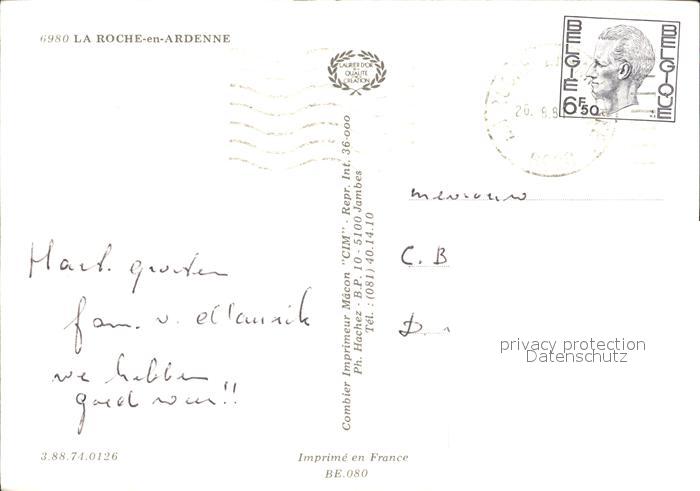 6980 LA ROCHE-en-ARDENNE
LAURIER D'OR
DE LA
QUALITÉ
CRÉATION
BELGIE
BELGIQUE
6F50
Hart. groeten
fam. v.
we hebben
goed weer!!
mevrouw
C. B
D
privacy protection
Datenschutz
Combier Imprimeur Mâcon "CIM" - Repr. Int. 36-000
Ph. Hachez - B.P. 10 - 5100 Jambes
Tél. : (081) 40.14.10
3.88.74.0126
Imprimé en France
BE.080